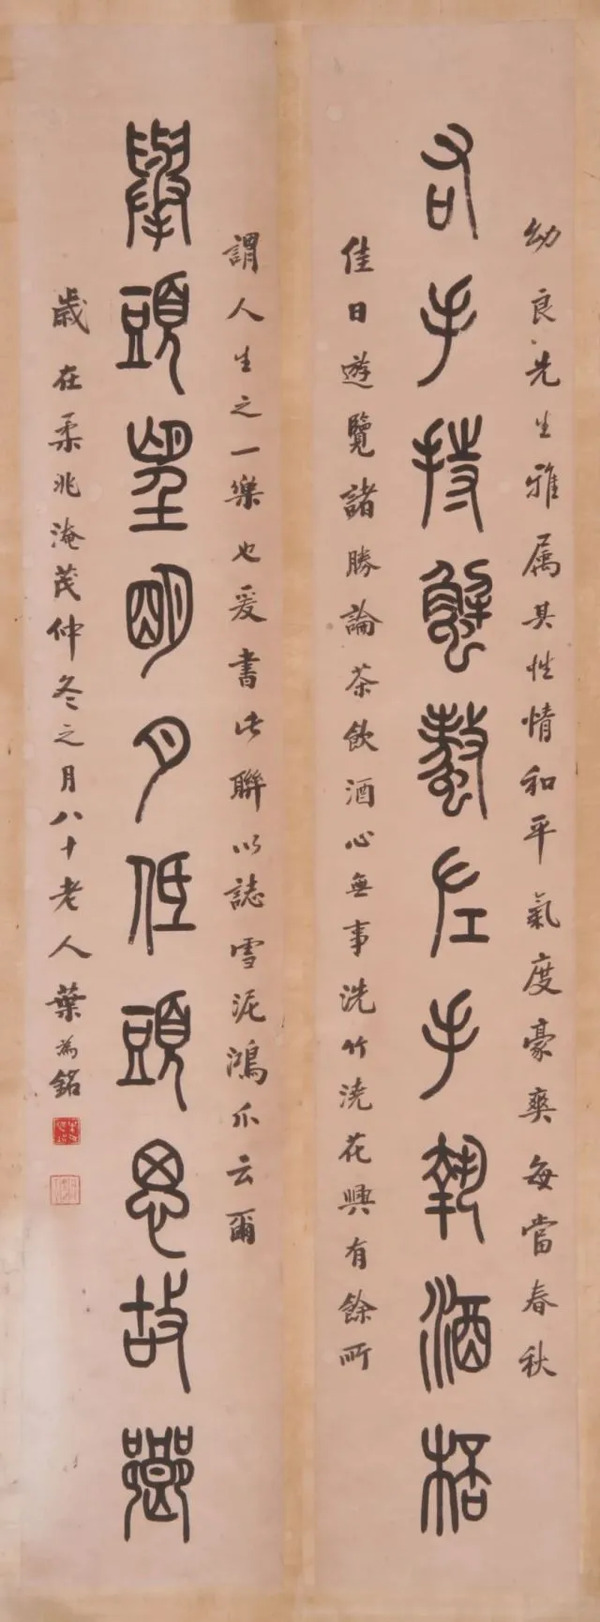 幼良先生雅属其性情和平氣度豪爽每當春秋
右手持蟹螯左手執酒桮
佳日遊覽諸勝論茶飲酒心無事洗竹澆花興有餘所
謂人生之一樂也爰書此聯以誌雪泥鴻爪云爾
舉頭望明月低頭思故鄉
歲在柔兆淹茂仲冬之月八十老人葉為銘